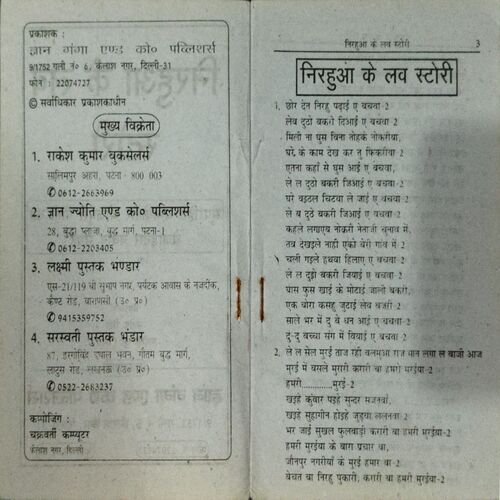 प्रकाशक :
ज्ञान गंगा एण्ड को० पब्लिशर्स
9/1752 गली नं० 6, कैलाश नगर, दिल्ली-31
फोन : 22074727
© सर्वाधिकार प्रकाशकाधीन
मुख्य विक्रेता
1. राकेश कुमार बुकसेलर्स
सालिमपुर अहरा, पटना - 800 003
✆ 0612-2663969
2. ज्ञान ज्योति एण्ड को० पब्लिशर्स
28, बुद्धा प्लाजा, बुद्ध मार्ग, पटना-1
✆ 0612-2203405
3. लक्ष्मी पुस्तक भण्डार
एस-21/119 बी सुभाष नगर, पर्यटक आवास के नजदीक,
कैण्ट रोड, वाराणसी (उ० प्र०)
✆ 9415359752
4. सरस्वती पुस्तक भंडार
87, हरगोविंद दयाल भवन, गौतम बुद्ध मार्ग,
लाटुस रोड, लखनऊ (उ० प्र०)
✆ 0522-2683237
कम्पोजिंग :
चक्रवर्ती कम्प्यूटर
कैलाश नगर, दिल्ली
निरहुआ के लव स्टोरी 3
निरहुआ के लव स्टोरी
1. छोर देन निरहु पढ़ाई ए बचवा-2
लेव दुठो बकरी दिआई ए बचवा-2
मिली ना घुस बिना तोहके नोकरीया,
घरे के काम देख कर तु फिकरीया-2
एतना कहाँ से घुस आई ए बचवा,
ले ल दुठो बकरी जिआई ए बचवा-2
घरे बइठल चिटवा ले जाई ए बचवा-2
ले ल दुठे बकरी जिआई ए बचवा-2
कहले लगाएब नोकरी नेताजी चुनाव में,
तब देखइले नाही एको बेरी गांव में-2
चली गइले हथवा हिलाए ए बचवा-2
ले ल दुठो बकरी जियाई ए बचवा-2
घास फुस खाई के मोटाई जालो बकरी,
एक बोरा कसहु जुटाई लेब बकरी-2
साले भर में दु बे धन आई ए बचवा-2
दु-दु बच्चा संग में वियाई ए बचवा-2
2. ले ल सेल मुरई ताज रही बनमुआ राज पान लगा ल बाजी आज
मुरई में बसले मुरारी करारी बा हमरी मुरईया-2
हमरी.............मुरई-2
खइहे कुंवार पइहे सुन्दर सजनवा,
खइहे सुहागीन होइहे जुहवा ललनवा-2
भर जाई सुखल फुलवाड़ी करारी बा हमरी मुरईया-2
हमरी मुरईया के बारा प्रचार बा,
जौनपुर नगरीया के मुरई हमार बा-2
बेचत बा निरहु पुकारी, करारी बा हमरी मुरईया-2